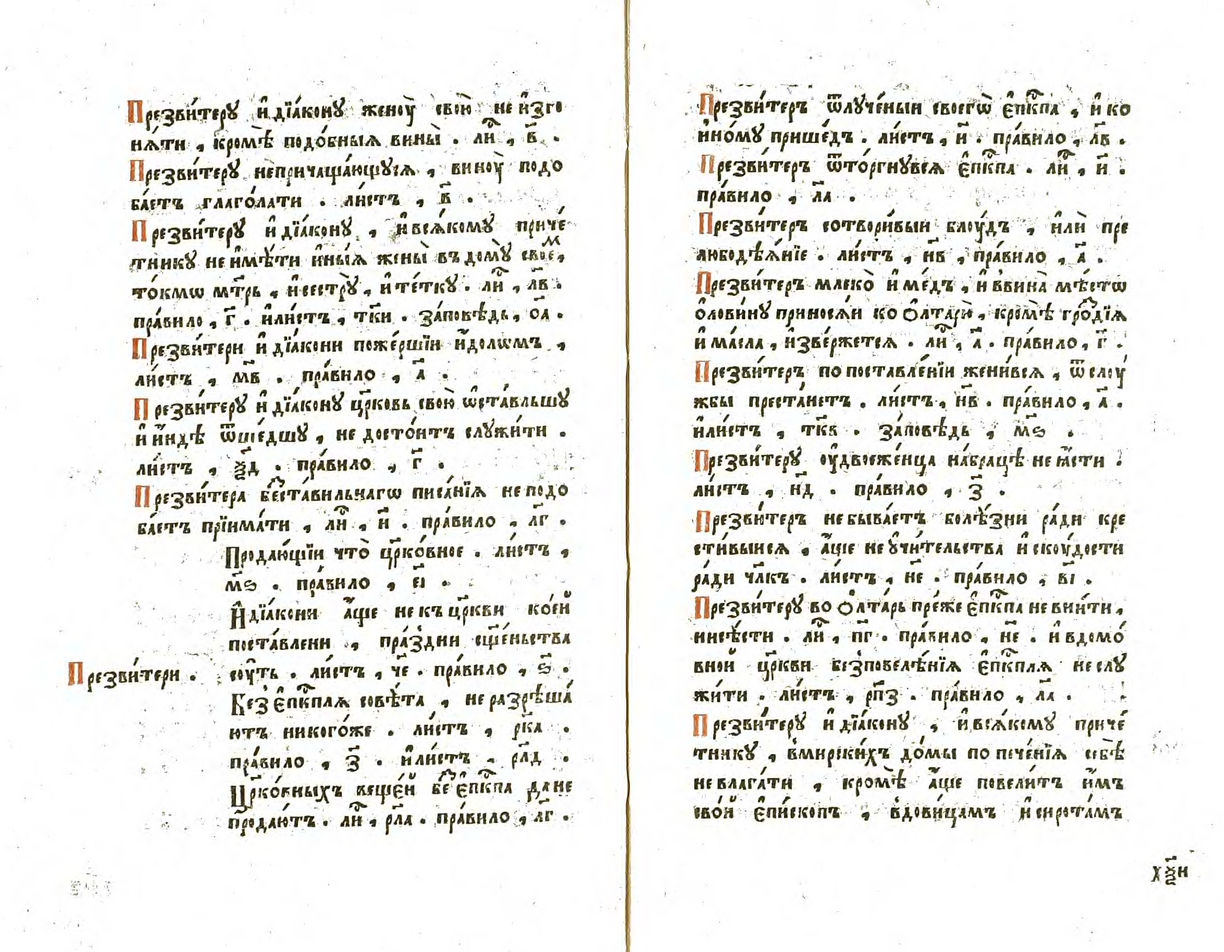 Презви́теру и҆дїа́кону женоу̀ свою̀ не и҆згоня́ти , кромѣ̀ подо́бныѧ вины̀ . ли́ , в҃ .
Презви́теру непричаща́ющусѧ , виноу̀ подо
ба́етъ глаго́лати . ли́стъ , в҃ .
Презви́теру и҆дїа́кону , и҆вся́кому приче́
тнику не и҆мѣ́ти и҆ны́ѧ жены̀ въ дому̀ свое́м ,
то́кмѡ мт҃рь , и҆сестру̀ , и҆те́тку . ли́ , лв҃ .
пра́вило , г҃ . и҆ли́стъ , тк҃и . за́повѣдь , о҃а .
Презви́тери и҆дїа́кони поже́ршїи и҆́долѡмъ ,
ли́стъ , м҃в . пра́вило , а҃ .
Презви́теру и҆дїа́кону цр҃ковь свою̀ ѡ҆ста́вльшу
и҆ и҆́ндѣ ѿше́дшу , не досто́итъ служи́ти .
ли́стъ , ѯ҃д . пра́вило , г҃ .
Презви́тера беста́вильнагѡ писа́нїѧ не подо
ба́етъ прїима́ти , ли́ , и҃ . пра́вило , лг҃ .
Продаю́щїи что̀ цр҃ко́вное . ли́стъ ,
м҃ѕ . пра́вило , є҃і .
И҆дїа́кони а҆́ще не къ цр҃кви ко́ей
поста́влени , пра́здни сщ҃е́ньства
Презви́тери . су́ть . ли́стъ , ч҃е . пра́вило , ѕ҃ .
Без̾ є҆пк҃плѧ совѣ́та , не разрѣша́
ютъ никого́же . ли́стъ , рк҃а .
пра́вило , з҃ . и҆ли́стъ , рл҃д .
Цр҃ко́вныхъ веще́й бе є҆пк҃па да не
продаю́тъ . ли́ , рл҃а . пра́вило , лг҃ .
Презви́теръ ѿлуче́ныи своегѡ̀ є҆пк҃па , и҆ ко
и҆ному̀ прише́дъ . ли́стъ , и҃ . пра́вило , лв҃ .
Презви́теръ ѿто́ргнувсѧ є҆пк҃па . ли́ , и҃ .
пра́вило , ла҃ .
Презви́теръ сотвори́выи блоу́дъ , и҆лѝ пре
любодѣѧ́нїе . ли́стъ , н҃в , пра́вило , а҃ .
Презви́теръ млеко̀ и҆ме́дъ , и҆ ввина̀ мѣ́стѡ
ѻ҆лови́ну приносѧ́и ко ѻ҆лтарю̀ , кромѣ̀ гро́здїѧ
и҆ ма́сла , и҆зве́ржетсѧ . ли́ , а҃ . пра́вило , г҃ .
Презви́теръ по поставле́нїи жени́всѧ , ѿ слоу́
жбы преста́нетъ . ли́стъ , н҃в . пра́вило , а҃ .
и҆ли́стъ , тк҃в . за́повѣдь , м҃ѕ .
Презви́теру оу҆двоеже́нца на́брацѣ не ꙗ҆́сти .
ли́стъ , н҃д . пра́вило , з҃ .
Презви́теръ не быва́етъ болѣ́зни ра́ди кре
сти́выисѧ , а҆́ще не учи́тельства и҆ скоу́дости
ра́ди чл҃къ . ли́стъ , н҃е . пра́вило , в҃і .
Презви́теру во ѻ҆лта́рь пре́же є҆пк҃па не вни́ти ,
нисѣ́сти . ли́ , п҃г . пра́вило , н҃е . и҆ вдомо́
вной цр҃кви безповелѣ́нїѧ є҆пк҃плѧ не слу
жи́ти . ли́стъ , рп҃з . пра́вило , ла҃ .
Презви́теру и҆дїа́кону , и҆вся́кому приче́
тнику , вмирски́хъ до́мы по пече́нїѧ себѣ̀
не влага́ти , кромѣ̀ а҆́ще повели́тъ и҆̀мъ
сво́й є҆пи́скопъ , вдови́цамъ и҆ сирота́мъ
хѯ҃и